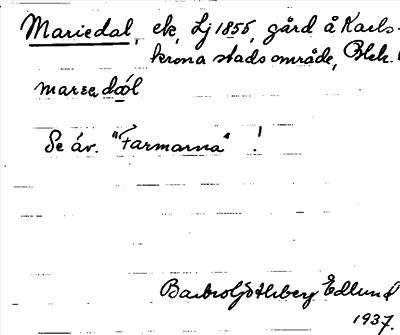 Mariedal, ek, Lj 1855, gård å Karls-
krona stadsområde, Blek.
marɩedál
Se äv. "Farmarna" !
Barbro Götherberg Edlund
1937.